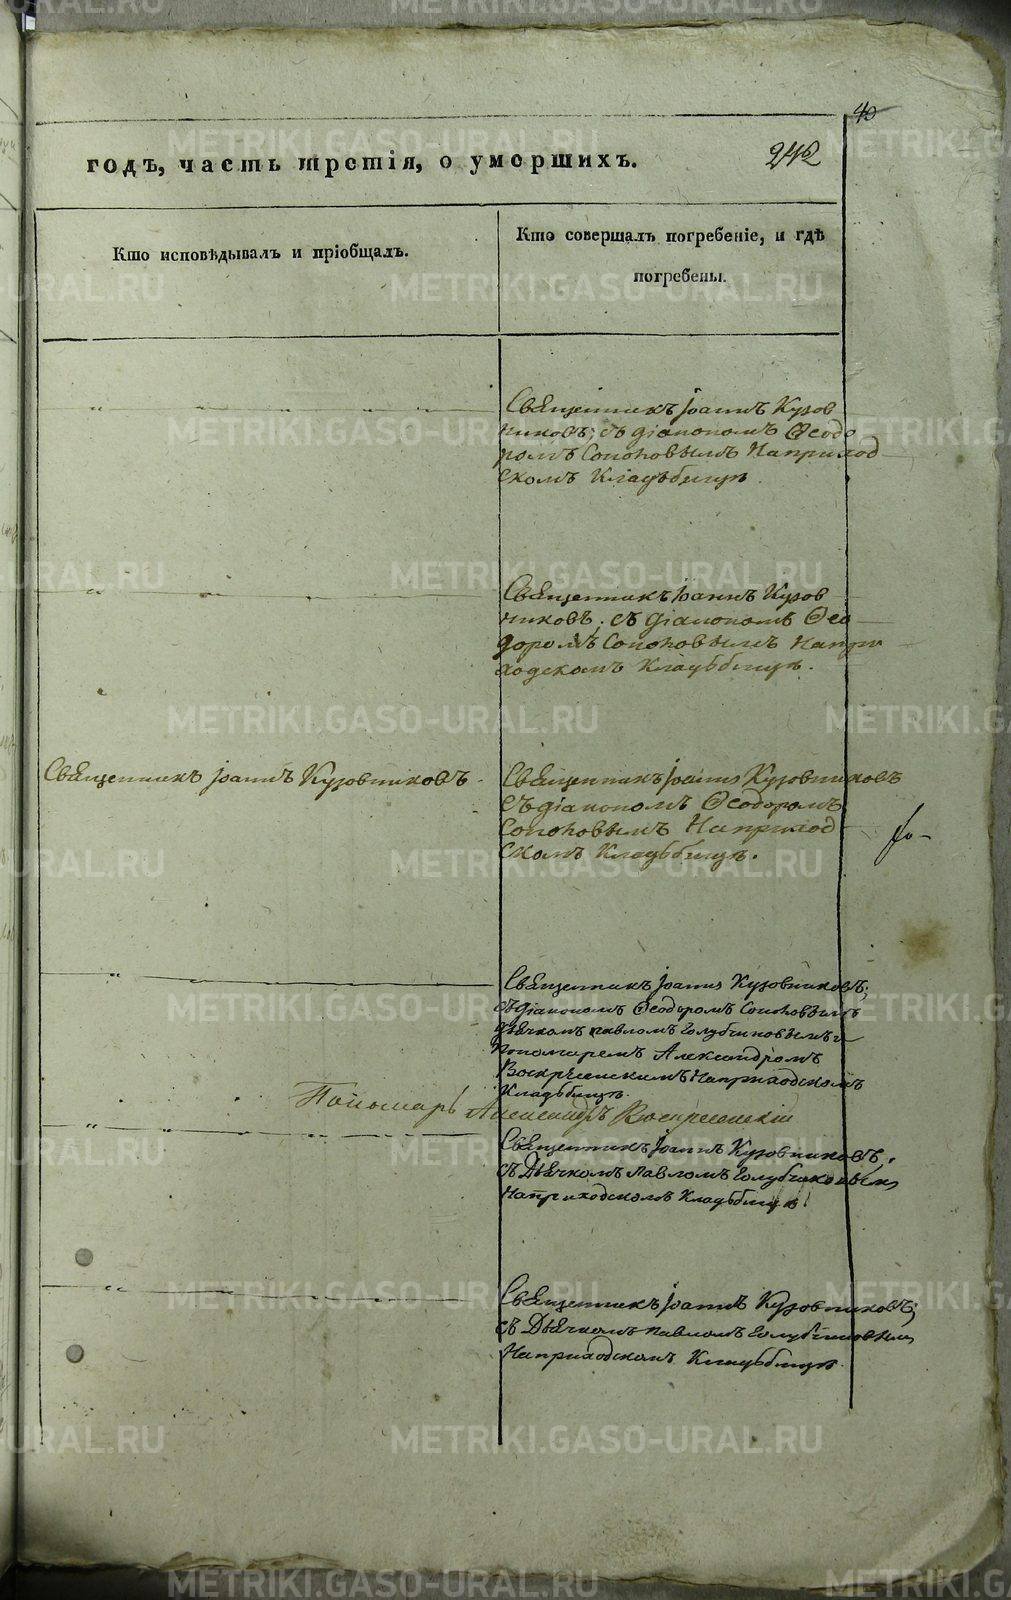 40
242
годъ, часть третія, о умершихъ.
Кто исповѣдывалъ и пріобщалъ.
Кто совершалъ погребеніе, и гдѣ
погребены.
Священникъ Іоаннъ Кузов
никовъ; съ діакономъ Ѳеодо
ромъ Сопоновымъ На приход
скомъ Кладьбищѣ
Священникъ Іоаннъ Кузов
никовъ. съ діакономъ Ѳео
доромъ Сопоновымъ На при
ходскомъ Кладьбищѣ.
Священникъ Іоаннъ Кузовниковъ.
Священникъ Іоаннъ Кузовниковъ
Съ діакономъ Ѳеодоромъ
Сопоновымъ На приход
скомъ Кладьбищѣ.
Священникъ Іоаннъ Кузовниковъ;
съ діакономъ Ѳеодоромъ Сопоновымъ
дьячкомъ павломъ Голубчиковымъ и
пономаремъ Александромъ
Воскресенскимъ На приходскомъ
Кладьбищѣ.
Пономарь Александръ Воскресенскій
Священникъ Іоаннъ Кузовниковъ,
съ Дьячкомъ павломъ Голубчиковым
На приходскомъ Кладьбищѣ
Священникъ Іоаннъ Кузовниковъ;
съ Дьячкомъ павломъ Голубчиковым
На приходскомъ Кладьбищѣ.
METRIKI.GASO-URAL.RU